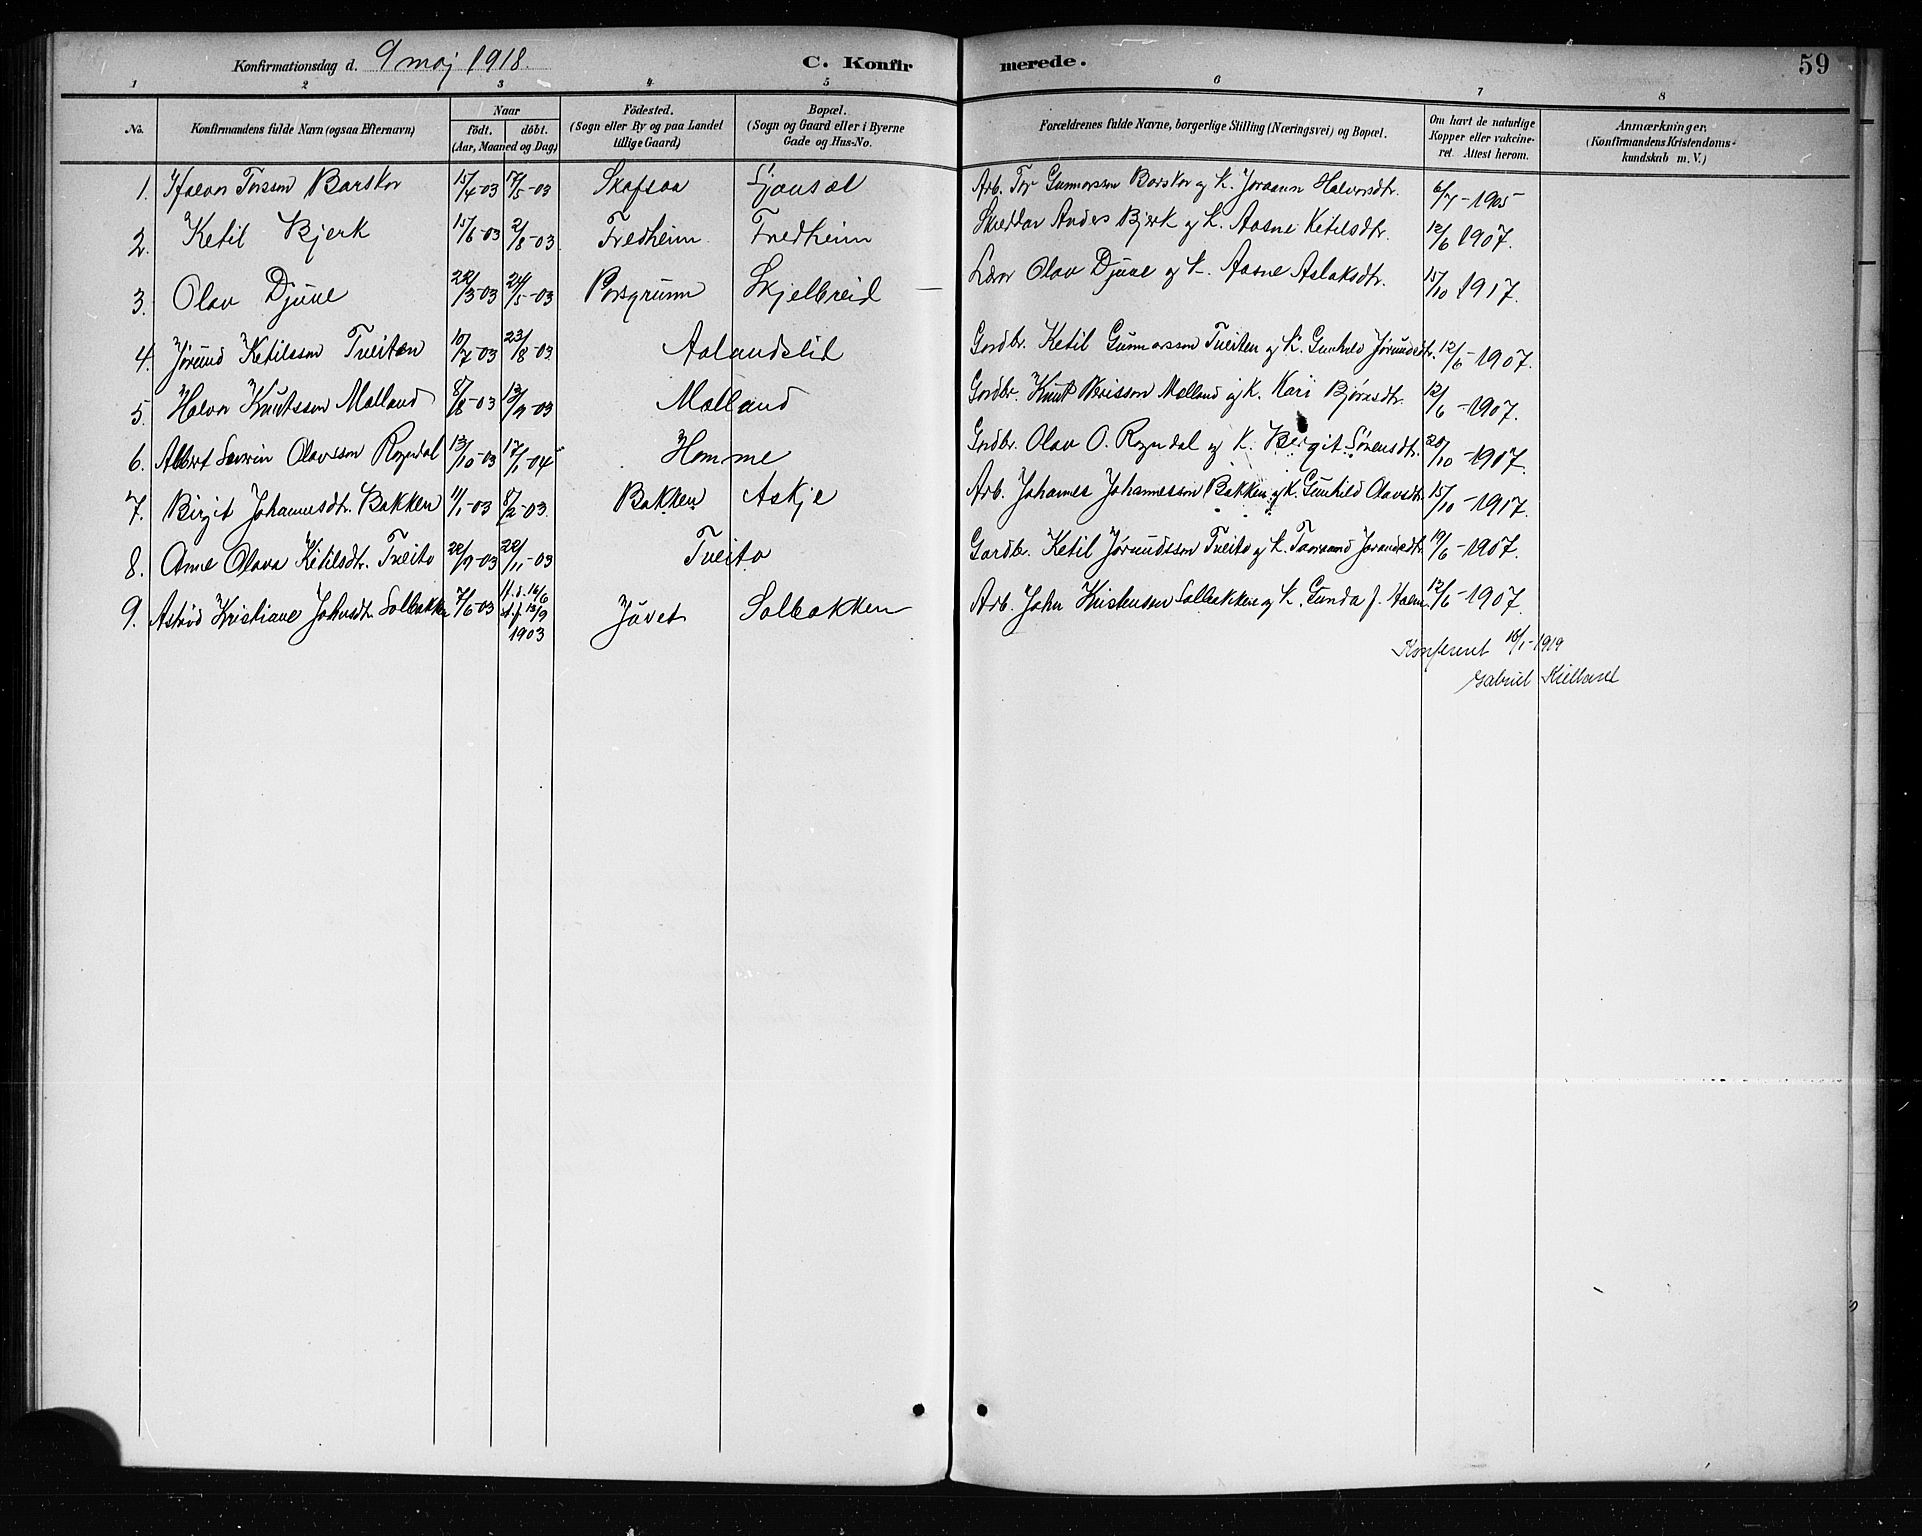 Konfirmationsdag d. 9 maj 1918. C. Konfirmerede. 59
1 2 3 4 5 6 7 8
No. Konfirmandens fulde Navn (ogsaa Efternavn) Naar født. døbt. (Aar, Maaned og Dag) Fødested. (Sogn eller By og paa Landet tillige Gaard) Bopæl. (Sogn og Gaard eller i Byerne Gade og Hus-No. Forældrenes fulde Navne, borgerlige Stilling (Næringsvei) og Bopæl. Om havt de naturlige Kopper eller vakcineret. Attest herom. Anmærkninger. (Konfirmandens Kristendomskundskab m. V.)
1. Halvor Torsson Barskor 15/4-03 17/5-03 Skafsaa Arb. Tor Gunnarsson Barskor og k. Joraann Halvorsdtr. 6/7-1905
2. Ketil Bjerk 15/6-03 2/8-03 Fredheim Fredheim Skreddar Anders Bjerk og k. Aasne Ketilsdtr. 12/6 1907.
3. Olav Djuve 22/3-03 24/5-03 Porsgrunn Skjelbreid — Lærer Olav Djuve og k. Aasne Aslaksdtr. 15/10 1917.
4. Jørund Ketilsson Tveiten 10/7-03 23/8-03 Aalandslid Gardbr. Ketil Gunnarsson Tveiten og k. Gunhild Jørundsdtr. 12/6-1907.
5. Halvor Knutsson Malland 8/8-03 13/9-03 Malland Gardbr. Knut Malland og k. Kari Bjørnsdtr. 12/6-1907.
6. Albert Olavsson Røyndal 13/10-03 17/1-04 Homme Gardbr. Olav O. Røyndal og k. Bergit Sørensdtr. 20/10-1907.
7. Birgit Johannesdtr. Bakken 11/1-03 8/2-03. Bakken Askje Arb. Johannes Johannesson Bakken og k. Gunhild Olavsdtr. 15/10-1917.
8. Anne Olava Ketilsdtr. Tveito 22/9-03 22/11-03 Tveito Gardbr. Ketil Jørundsson Tveito og k. 19/6-1907.
9. Astrid Kristiane Johnsdtr. Solbakken 7/6-03 H.d. 16/6 st.f. 13/9 1903 Juvet Solbakken Arb. John Kristensson Solbakken og k. Gunda J. 12/6-1907.
Konferert 18/1-1919
Gabriel Kielland